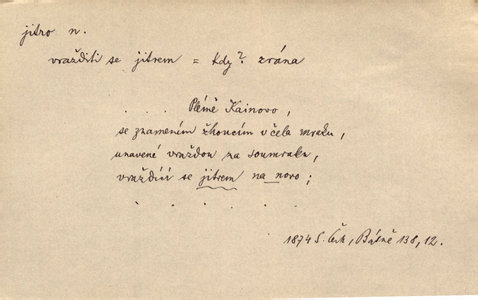 jitro n.
vražditi se jitrem = kdy? zrána
. . . . Plémě Kainovo,
se znamením žhoucím v čela mraku,
unavené vraždou za soumraku,
vraždící se jitrem na novo;
. . . . .
1874 S. Čech, Básně 138, 12.